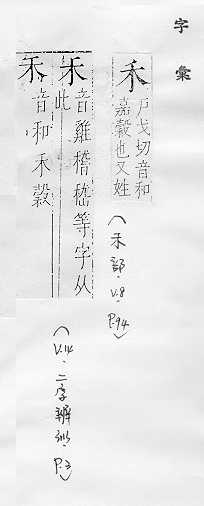 字彙
禾
戶戈切音和
嘉穀也又姓
(禾部.V.8.
P.94)
𥝌
音雞稽嵇等字从
此
禾
音和禾穀
(V.14.二字辨似.P.3)